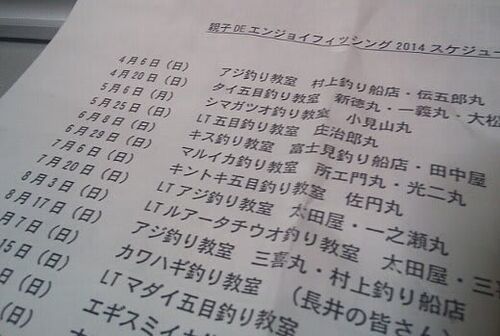 親子DEエンジョイフィッシング2014スケジュー
4月6日（日） アジ釣り教室 村上釣り船店・伝五郎丸
4月20日（日） タイ五目釣り教室 新徳丸・一義丸・大松
5月6日（月） シマガツオ釣り教室 小見山丸
5月25日（日） LT五目釣り教室 庄治郎丸
6月8日（日） キス釣り教室 富士見釣り船店・田中屋
6月29日（日） マルイカ釣り教室 所エ門丸・光二丸
7月6日（日） キントキ五目釣り教室 佐円丸
7月20日（日） LTアジ釣り教室 太田屋・一之瀬丸
8月3日（日） LTルアータチウオ釣り教室 太田屋・三喜
8月17日（日） アジ釣り教室 三喜丸・村上釣り船店
月7日（日） カワハギ釣り教室 （長井の皆さん
15日（日） LTマダイ五目釣り教室
日（日） エギスミイカ